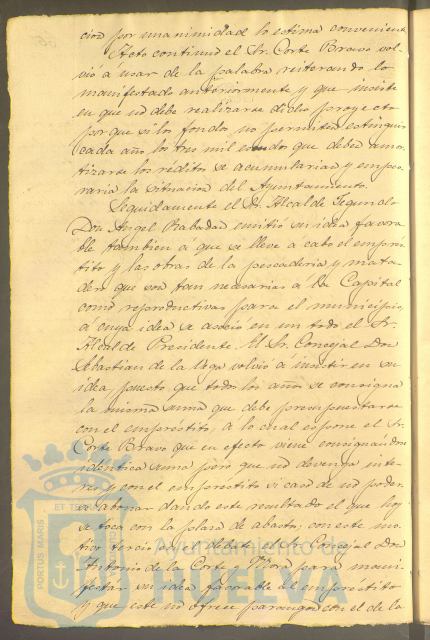 cion por unanimidad lo estima conveniente
Acto continuo el Sr. Corte Bravo vol-
vió á usar de la palabra reiterando lo
manifestado anteriormente y que insiste
en que no debe realizarse dicho proyecto
porque si los fondos no permiten extinguir
cada año los tres mil escudos que deben amor-
tizarse los réditos se acumularian y empeo-
raria la situacion del Ayuntamiento.
Seguidamente el Sr. Alcalde Segundo
Don Angel Rabadan emitió su idea favora-
ble tambien á que se lleve a cabo el emprés-
tito y las obras de la pescaderia y mata-
dero que son tan necesarias á la Capital
como reproductivas para el municipio,
á cuya idea se asoció en un todo el Sr.
Alcalde Presidente. El Sr. Concejal Don
Sebastian de la Vega volvió á insistir en su
idea, puesto que todos los años se consigna
la misma suma que debe presupuestarse
con el empréstito, á lo cual espone el Sr.
Corte Bravo que en efecto viene consignandose
idéntica suma pero que no devenga inte-
reses y con el empréstito si caso de no poder-
se abonar dando este resultado el que hoy
se toca con la plaza de abastos; con este mo-
tivo terció en el debate el Sr. Concejal Don
Antonio de la Corte y para mani-
festar su idea favorable al empréstito
y que este no ofrece parangon con el de la
PORTUS MARIS ET TERRÆ
Ayuntamiento de
HUELVA